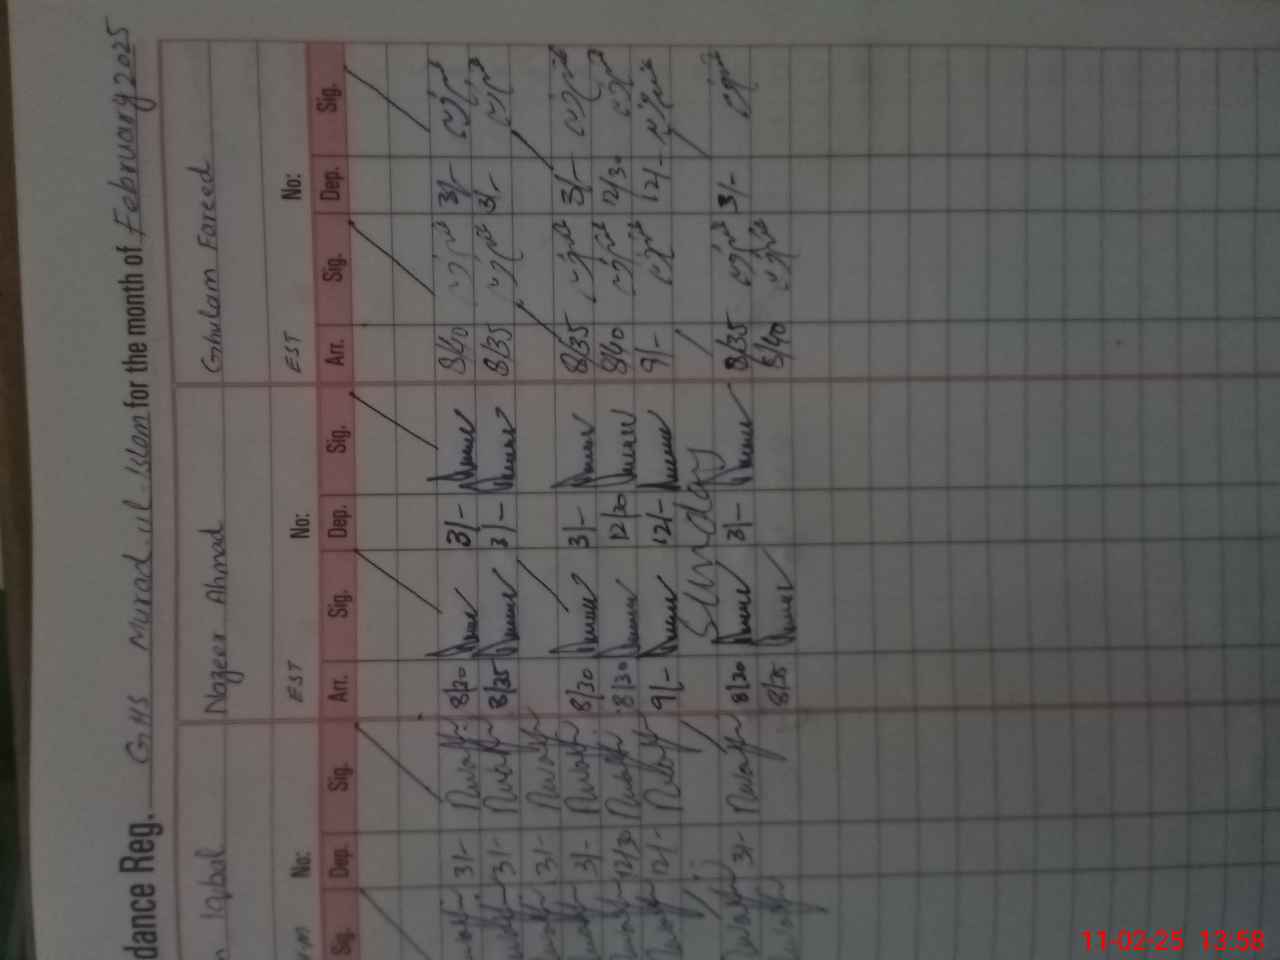 dance Reg. GHS Murad ul Islam for the month of February 2025
Iqbal Nazeer Ahmad Ghulam Fareed
No: EST No: EST No:
Sig. Dep. Sig. Arr. Sig. Dep. Sig. Arr. Sig. Dep. Sig.
3/- 8/20 3/- 8/40 3/-
3/- 8/25 3/- 8/35 3/-
3/-
3/- 8/30 3/- 8/35 3/-
12/30 8/30 12/30 8/40 12/30
12/- 9/- 12/- 9/- 12/-
Sunday
3/- 8/30 3/- 8/35 3/-
8/25 8/40
11-02-25 13:58